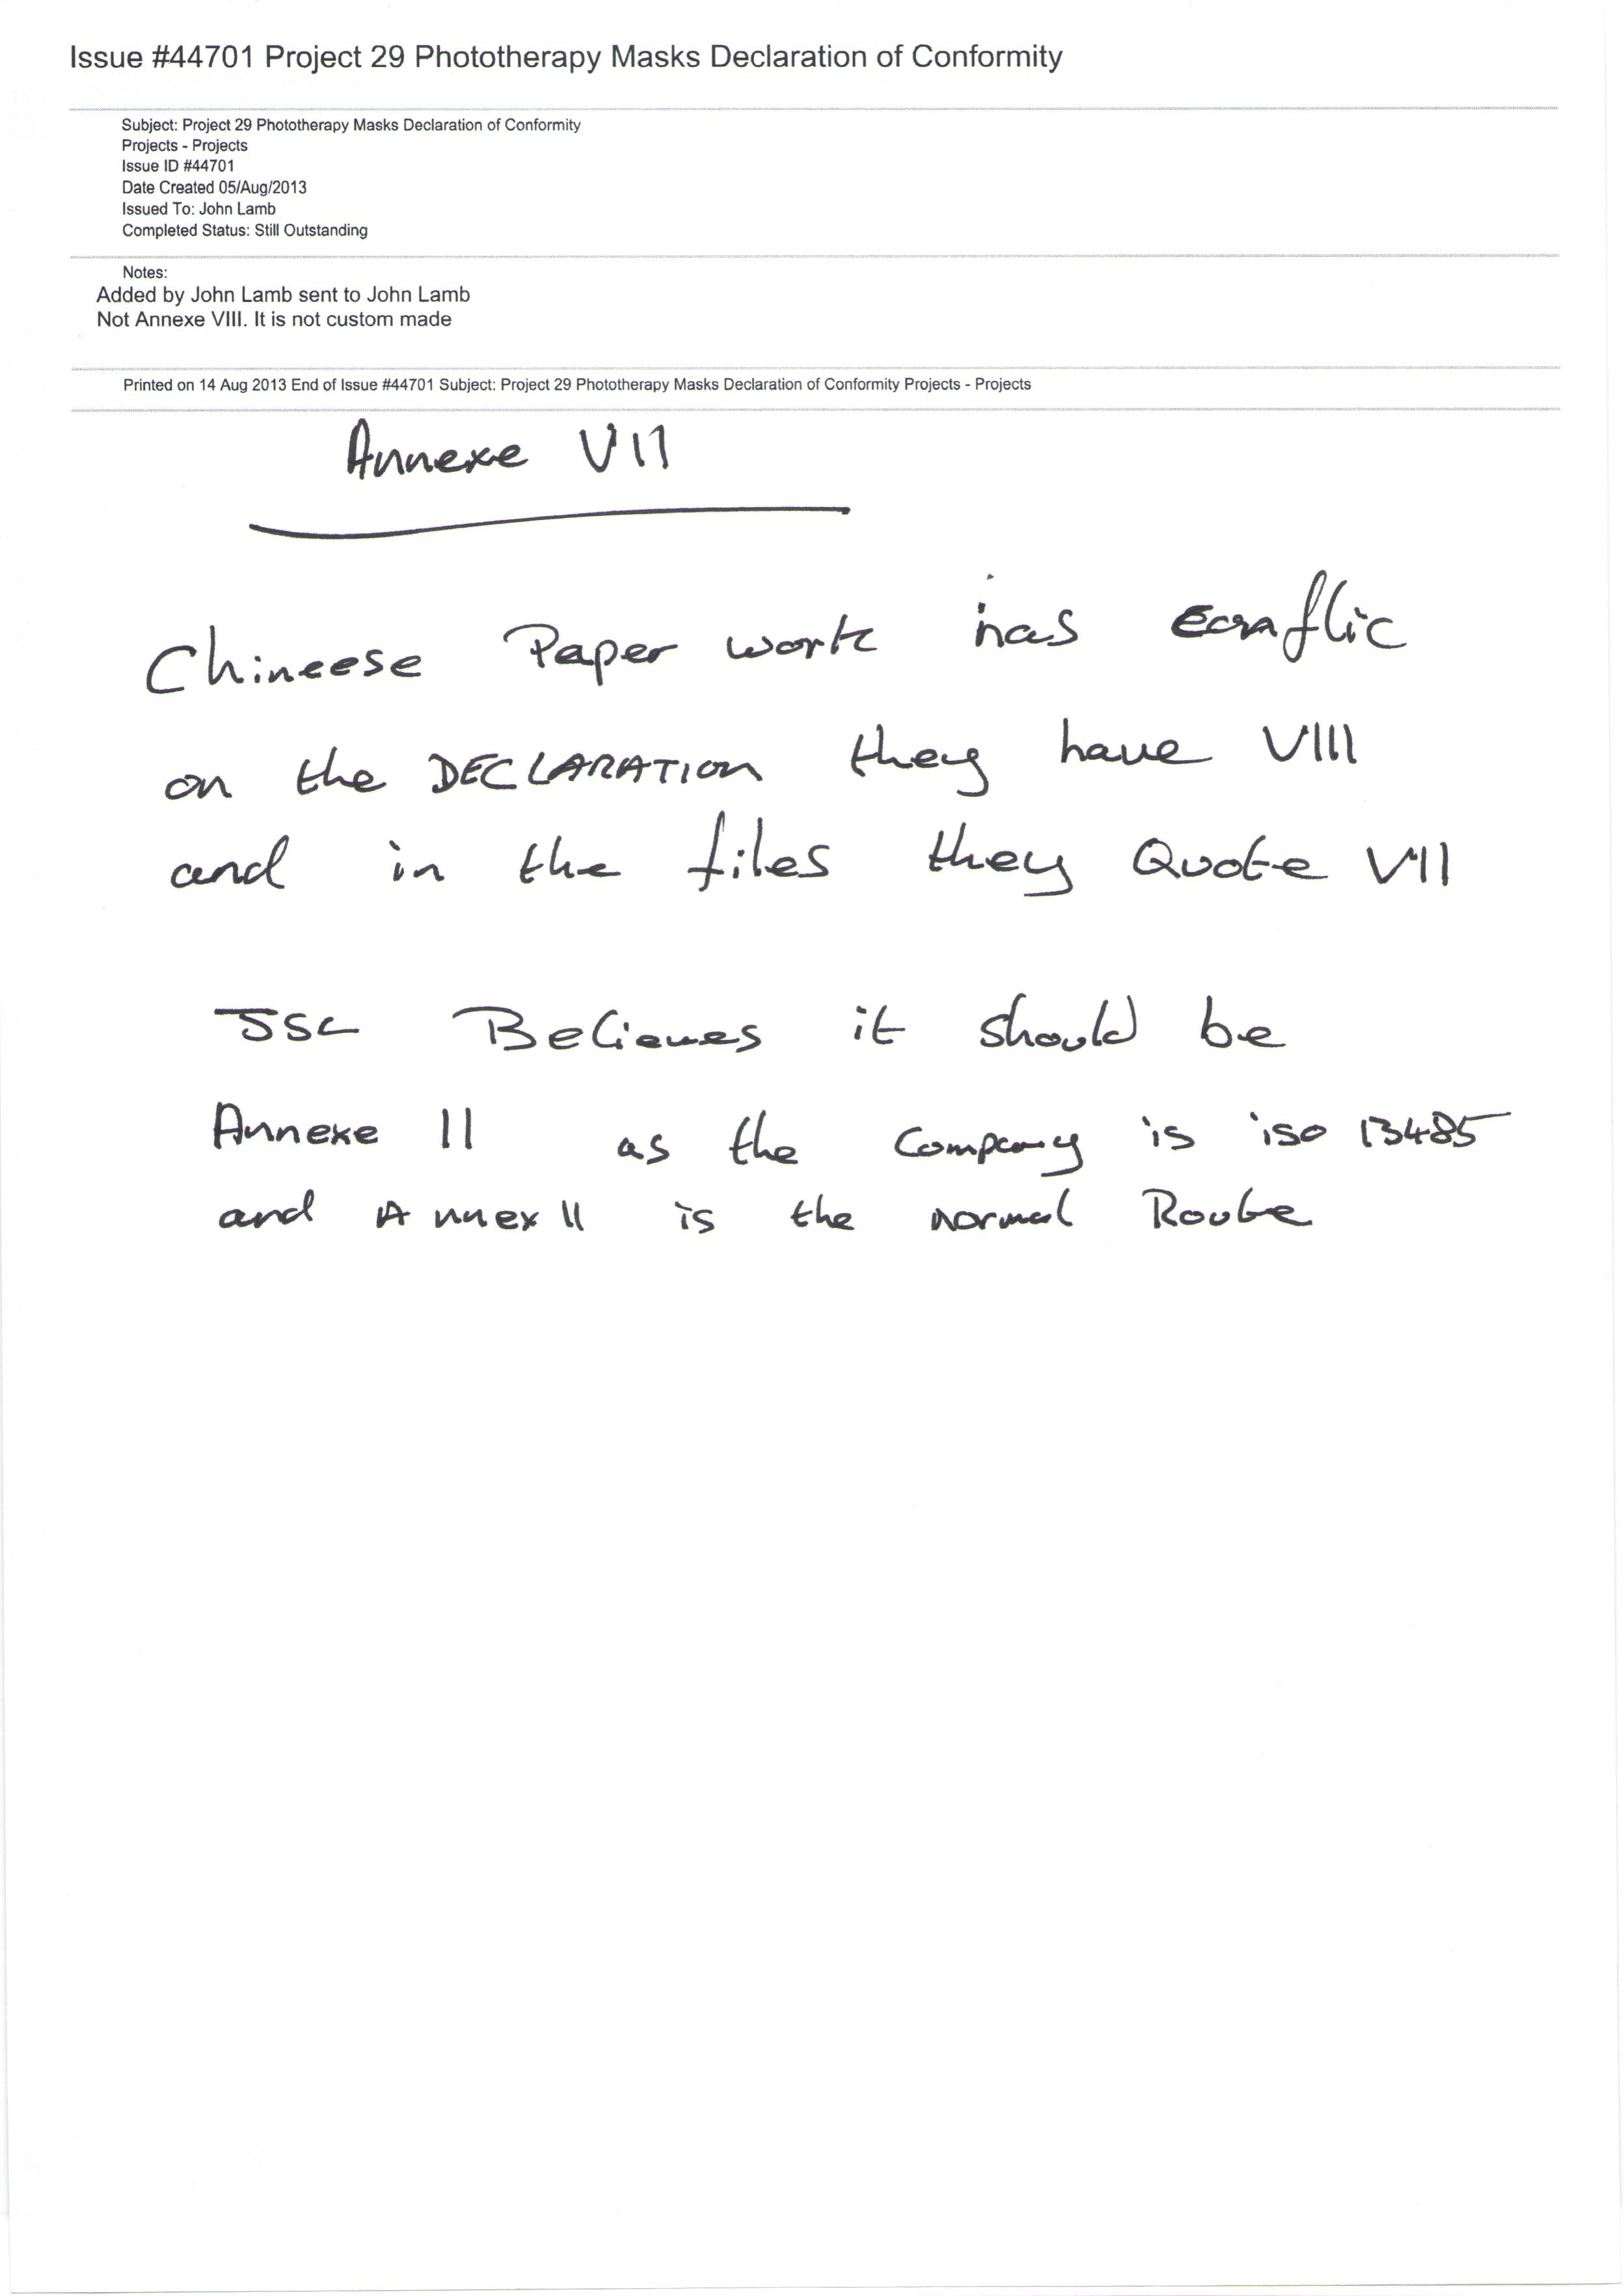 Issue #44701 Project 29 Phototherapy Masks Declaration of Conformity
Subject: Project 29 Phototherapy Masks Declaration of Conformity
Projects - Projects
Issue ID #44701
Date Created 05/Aug/2013
Issued To: John Lamb
Completed Status: Still Outstanding
Notes:
Added by John Lamb sent to John Lamb
Not Annexe VIII. It is not custom made
Printed on 14 Aug 2013 End of Issue #44701 Subject: Project 29 Phototherapy Masks Declaration of Conformity Projects - Projects
Annexe VII
Chineese Paper work has conflic
on the DECLARATION they have VIII
and in the files they Quote VII
JSC Believes it should be
Annexe II as the Company is iso 13485
and Annex II is the normal Route